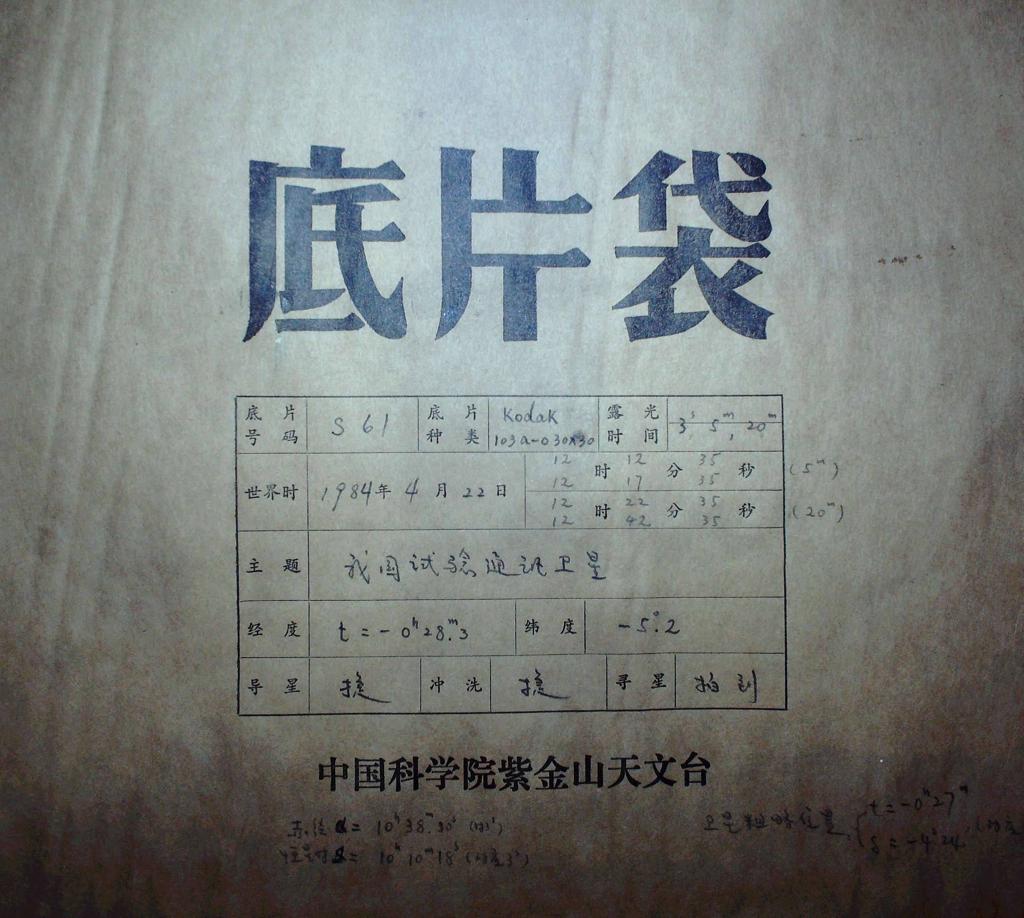 底片袋
底片号码 S 61 底片种类 Kodak 103a-O 30×30 露光时间 3ˢ, 5ᵐ, 20ᵐ
世界时 1984年 4月 22日 12时12分35秒 (5ᵐ)
12 17 35
12时22分35秒 (20ᵐ)
12 42 35
主题 我国试验通讯卫星
经度 t = -0ʰ28ᵐ.3 纬度 -5°.2
导星 冲洗 寻星 拍到
中国科学院紫金山天文台
赤经 α = 10ʰ38ᵐ.30ˢ
= 10ʰ10ᵐ18ˢ
卫星粗略位置 t = -0ʰ27ᵐ
δ = -4°24